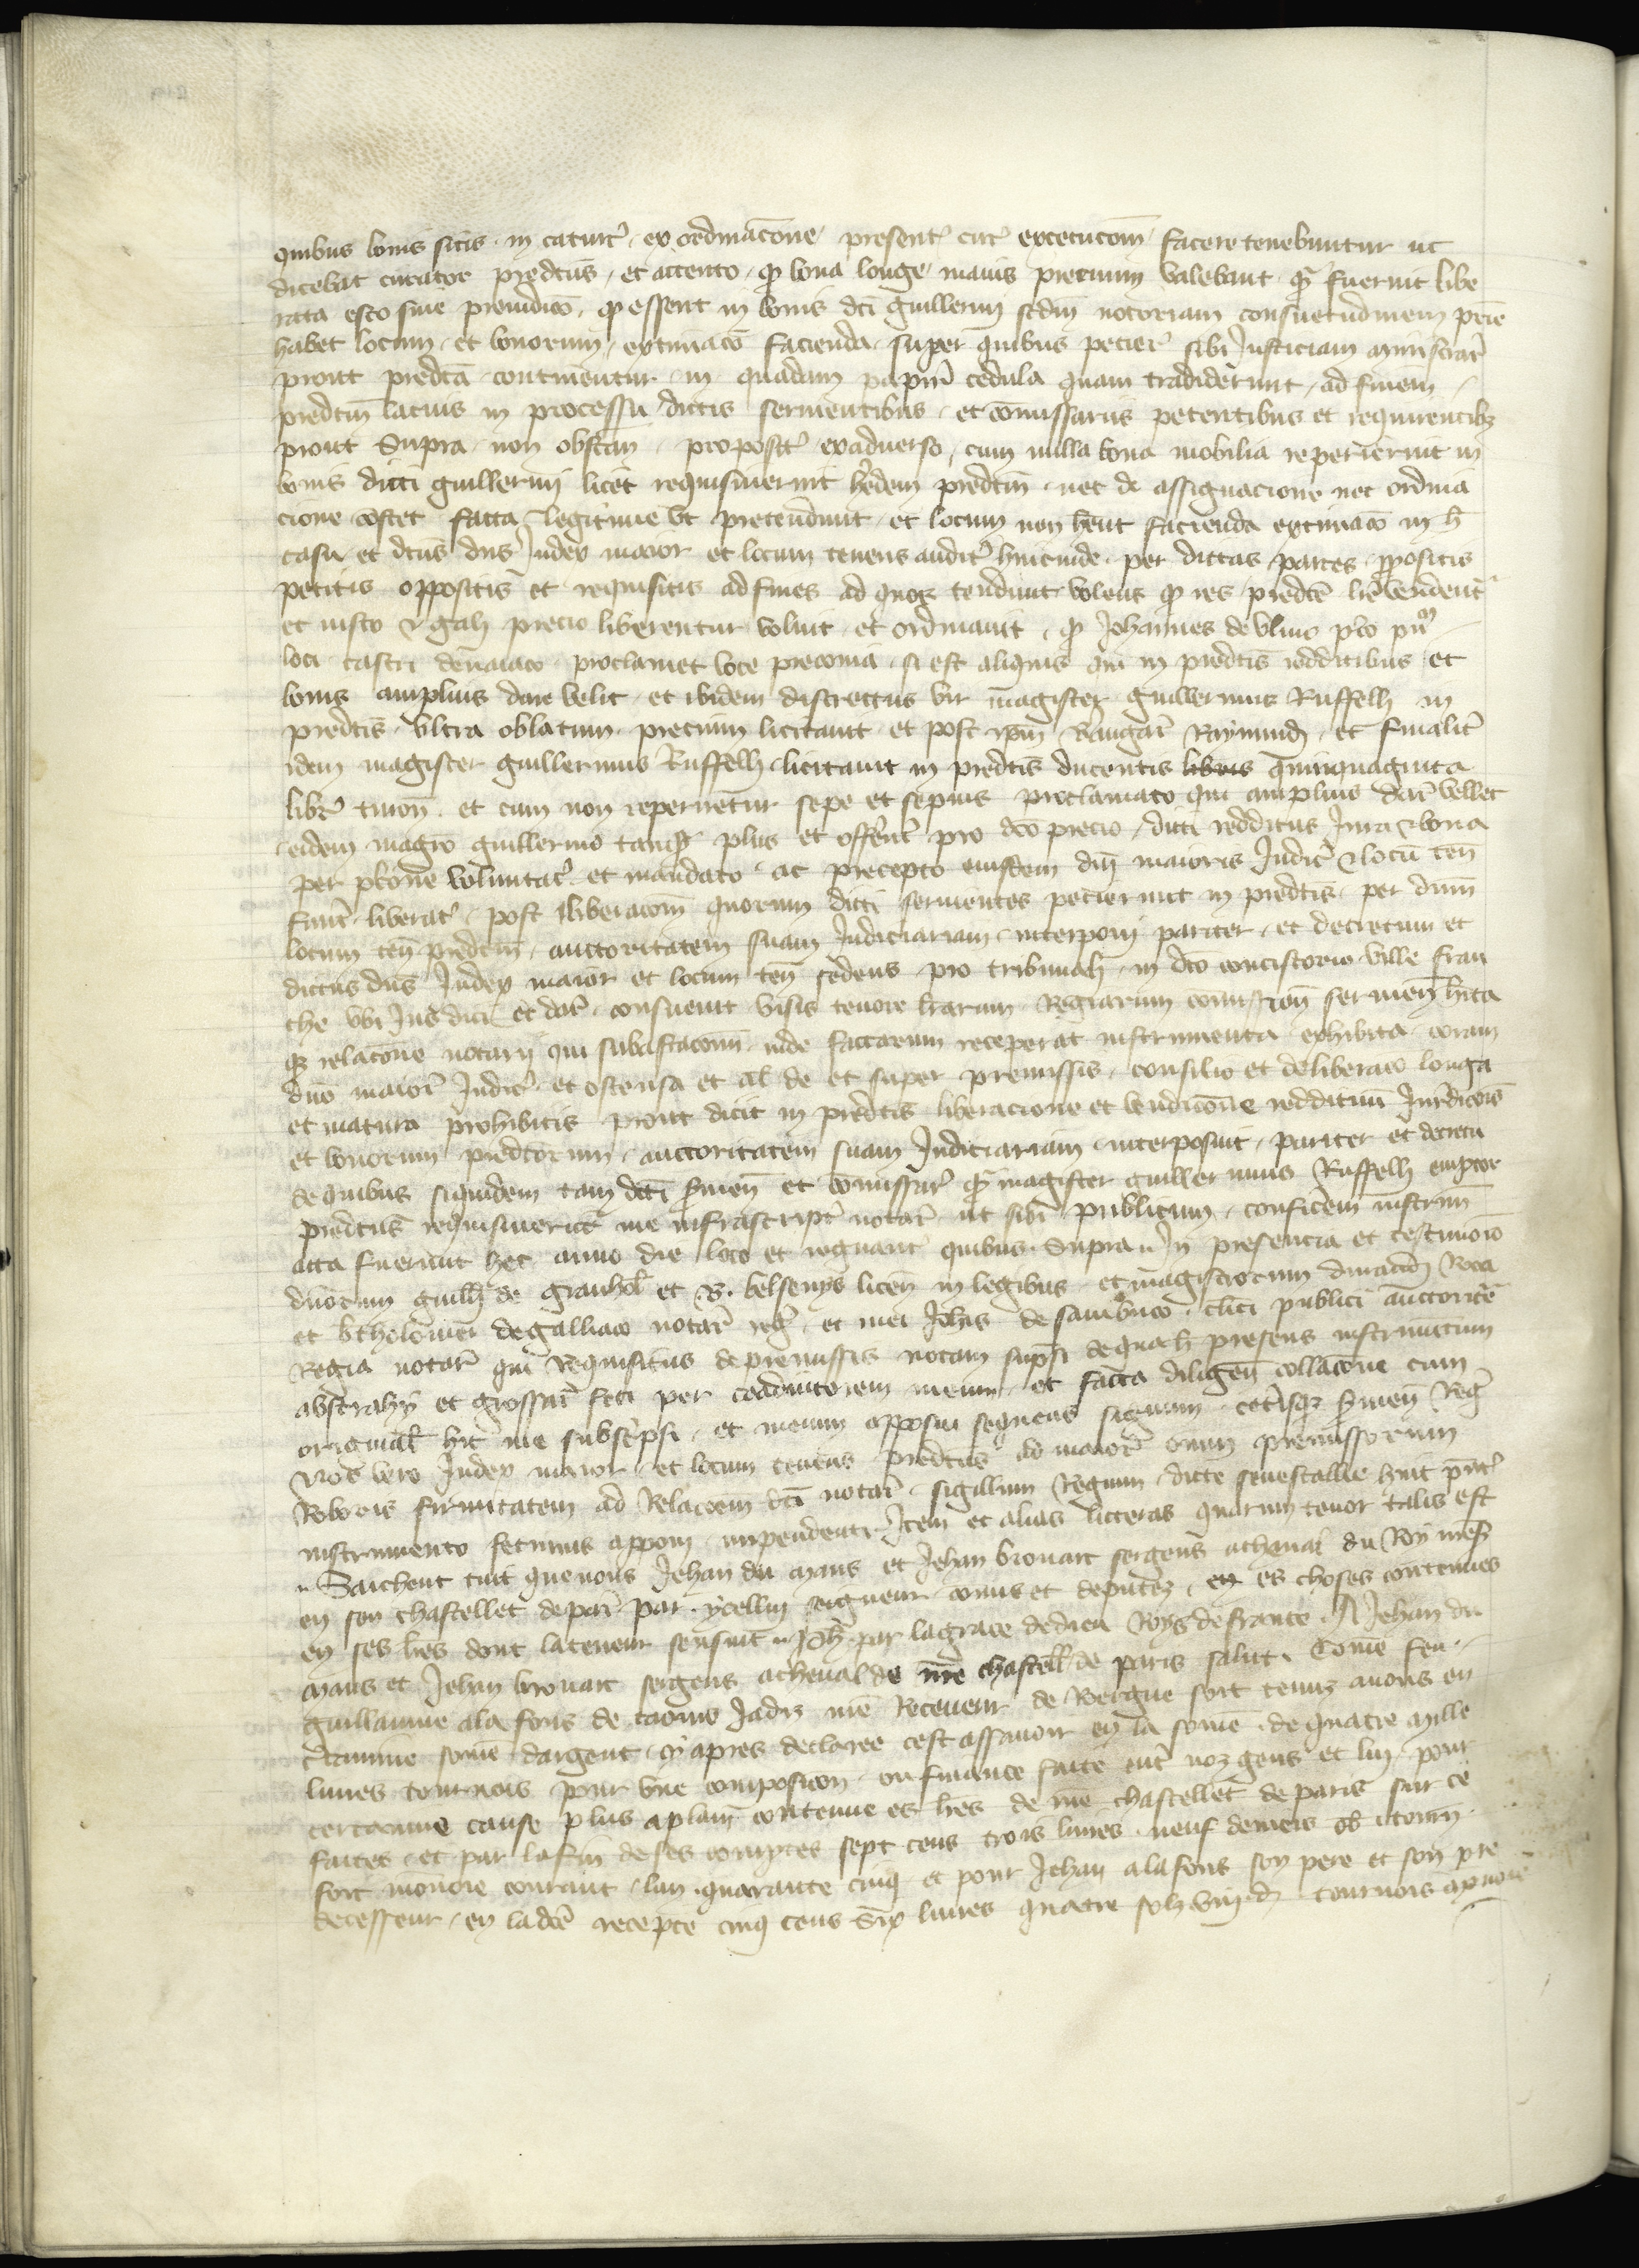 quibus bonis sitis in caturc̃ ex ordinac̃one present̃ cur̃ execuc̃om̃ facere tenebuntur ut
dicebat curator predc̃us et attento q̃ bona longe maius precium valebant q̃ fuerint libe
rata esto sine preiudic̃o q̃ essent in bonis dc̃i guillermi scdm̃ notoriam consuetudinem
habet locum et bonorum extimac̃o facienda super quibus petier̃ sibi Justiciam ministrar̃
prout predc̃a continentur in quadam papiri cedula quam tradiderunt ad finem
predc̃m latius in processu dictis servientibus et com̃issariis petentibus et requirentibz
prout Supra non obstan̄ proposit̃ exadverso cum nulla bona mobilia reperierint in
bonis dicti guillermi licet requisiverint h̃edem predc̃m nec de assignacione nec ordina
cione c̃stet facta legitime ut pretendunt et locum non h̃ent facienda extimac̃o in h̃
casu et dc̃us dñs Judex maior et locum tenens audit̃ hincinde per dictas partes p̃positis
petitis oppositis et requisitis ad fines ad quos tendunt volens q̃ res predc̃e
et iusto precio liberentur voluit et ordinavit q̃ Johannes de Ulmo
loci castri proclamet voce preconia si est aliquis qui in predc̃is redditibus et
bonis amplius dare velit et ibidem discrectus vir magister guillermus Ruffelh in
predc̃is ultra oblatum precium licitavit et post ip̃m Raymundj et finalit̃
idem magister guillermus Ruffelh licitavit in predc̃is ducentis libris quinquaginta
libr̃ turon̄ et cum non reperiretur sepe et sepius proclamato qui amplius dar̃ vellet
eidem magr̃o guillermo tanq̃ plus et offer̃nt pro dc̃o precio dicti redditus Jura & bona
per voluntat̃ et mandato ac precepto eiusdem dñi maioris Judic̃ & locũ ten̄
fuer̃t liberat̃ post liberac̃om̃ quorum dicti servientes petierunt in predc̃is per dñm
locum ten̄ predc̃m auctoritatem suam Judiciariam interponi pariter et decretum et
dictus dñs Judex maior et locum ten̄ sedens pro tribunali in dc̃o concistorio ville fran
che ubi Jus dici et dar̃ consuevit visis tenore lr̃arum Regiarum com̃ission̄ servien̄ h̃ita
q̃ relac̃one notarii qui subastac̃onũ inde factarum receperat instrumenta exhibita coram
dño maior̃ Judic̃ et ostensa et al̃ de et super premissis consilio et deliberac̃o longa
et matura prohibitis prout dicit in predc̃is liberacione et vendic̃one reddituũ Jurẽdic̃ois
et bonorum predc̃orum auctoritatem suam Judiciariam interposuit pariter et decretũ
de quibus siquidem tam dc̃i s̃vien̄ et com̃issar̃ q̃ magister guillermus Ruffelh emptor
predc̃us requisiverũt me infrascript̃ notar̃ ut sibi publicum conficerem instrum̃
acta fuerunt hec anno die loco et regnant̃ quibus Supra In presencia et testimoĩo
dñorum guilh̃ de et B. belsenys licen̄ in legibus et magistrorum durandj Roca
et b̃tholomei de galliaco notar̃ reg̃ et mei Joh̃is de sambuco cl̃ici publici auctorit̃e
Regia notar̃ qui Requisitus de premissis notam sup̃si de quah̃ presens instrumentum
abstrahy et grossar̃ feci per coadiutorem meum et facta diligen̄ collac̃one cum
originali hic me subsc̃psi et meum apposui sequens signum
Nos vero Judex maior et locum tenens predc̃us ad maior̃ om̃m premissorum
Roboris firmitatem ad Relac̃oem dc̃i notar̃ sigillum Regium dicte senescallie huic p̃nt̃
instrumento fecimus apponi impendenti Item et alias litteras quarum tenor talis est
Saichent tuit que nous Jehan du mans et Jehan brouart sergens acheval du Roy nres̃
en son chastellet de par̃ par ycellui seigneur com̃is et deputez en es choses contenues
en ses lr̃es dont la teneur sensuit Joh̃ par la grace de dieu Roys de france A Jehan du
mans et Jehan brouart sergens acheval de nr̃e chastell̃ de paris salut Com̃e feu
guillaume ala fons de caours Jadiz nr̃e Receveur de Roergue soit tenuz anous en
c̃taimme som̃e dargent cy apres declaree cest assavoir en la som̃e de quatre mille
livres tournois pour une composic̃on ou finance faite ent̃ noz gens et lui pour
certainne cause plus aplain contenue es lr̃es de nr̃e chastellet de paris sur ce
faites et par la fin de ses comptes sept cens trois livres neuf deniers ob tourñ
fort monoie courant lan quarante cinq et pour Jehan alafons son pere et son pre
decesseur en la dc̃e recepte cinq cens Six livres quatre solz viij d̃ tournois